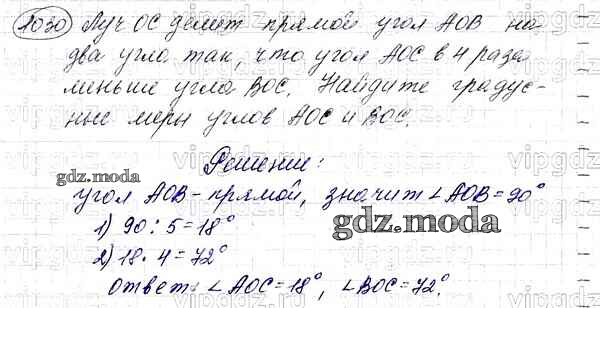 1030 Луч ОС делит прямой угол АОВ на
два угла так, что угол АОС в 4 раза
меньше угла ВОС. Найдите градус-
ные меры углов АОС и ВОС.
Решение:
gdz.moda
угол АОВ - прямой, значит ∠АОВ = 90°
1) 90 : 5 = 18°
gdz.moda
2) 18 · 4 = 72°
Ответ: ∠АОС = 18°, ∠ВОС = 72°.